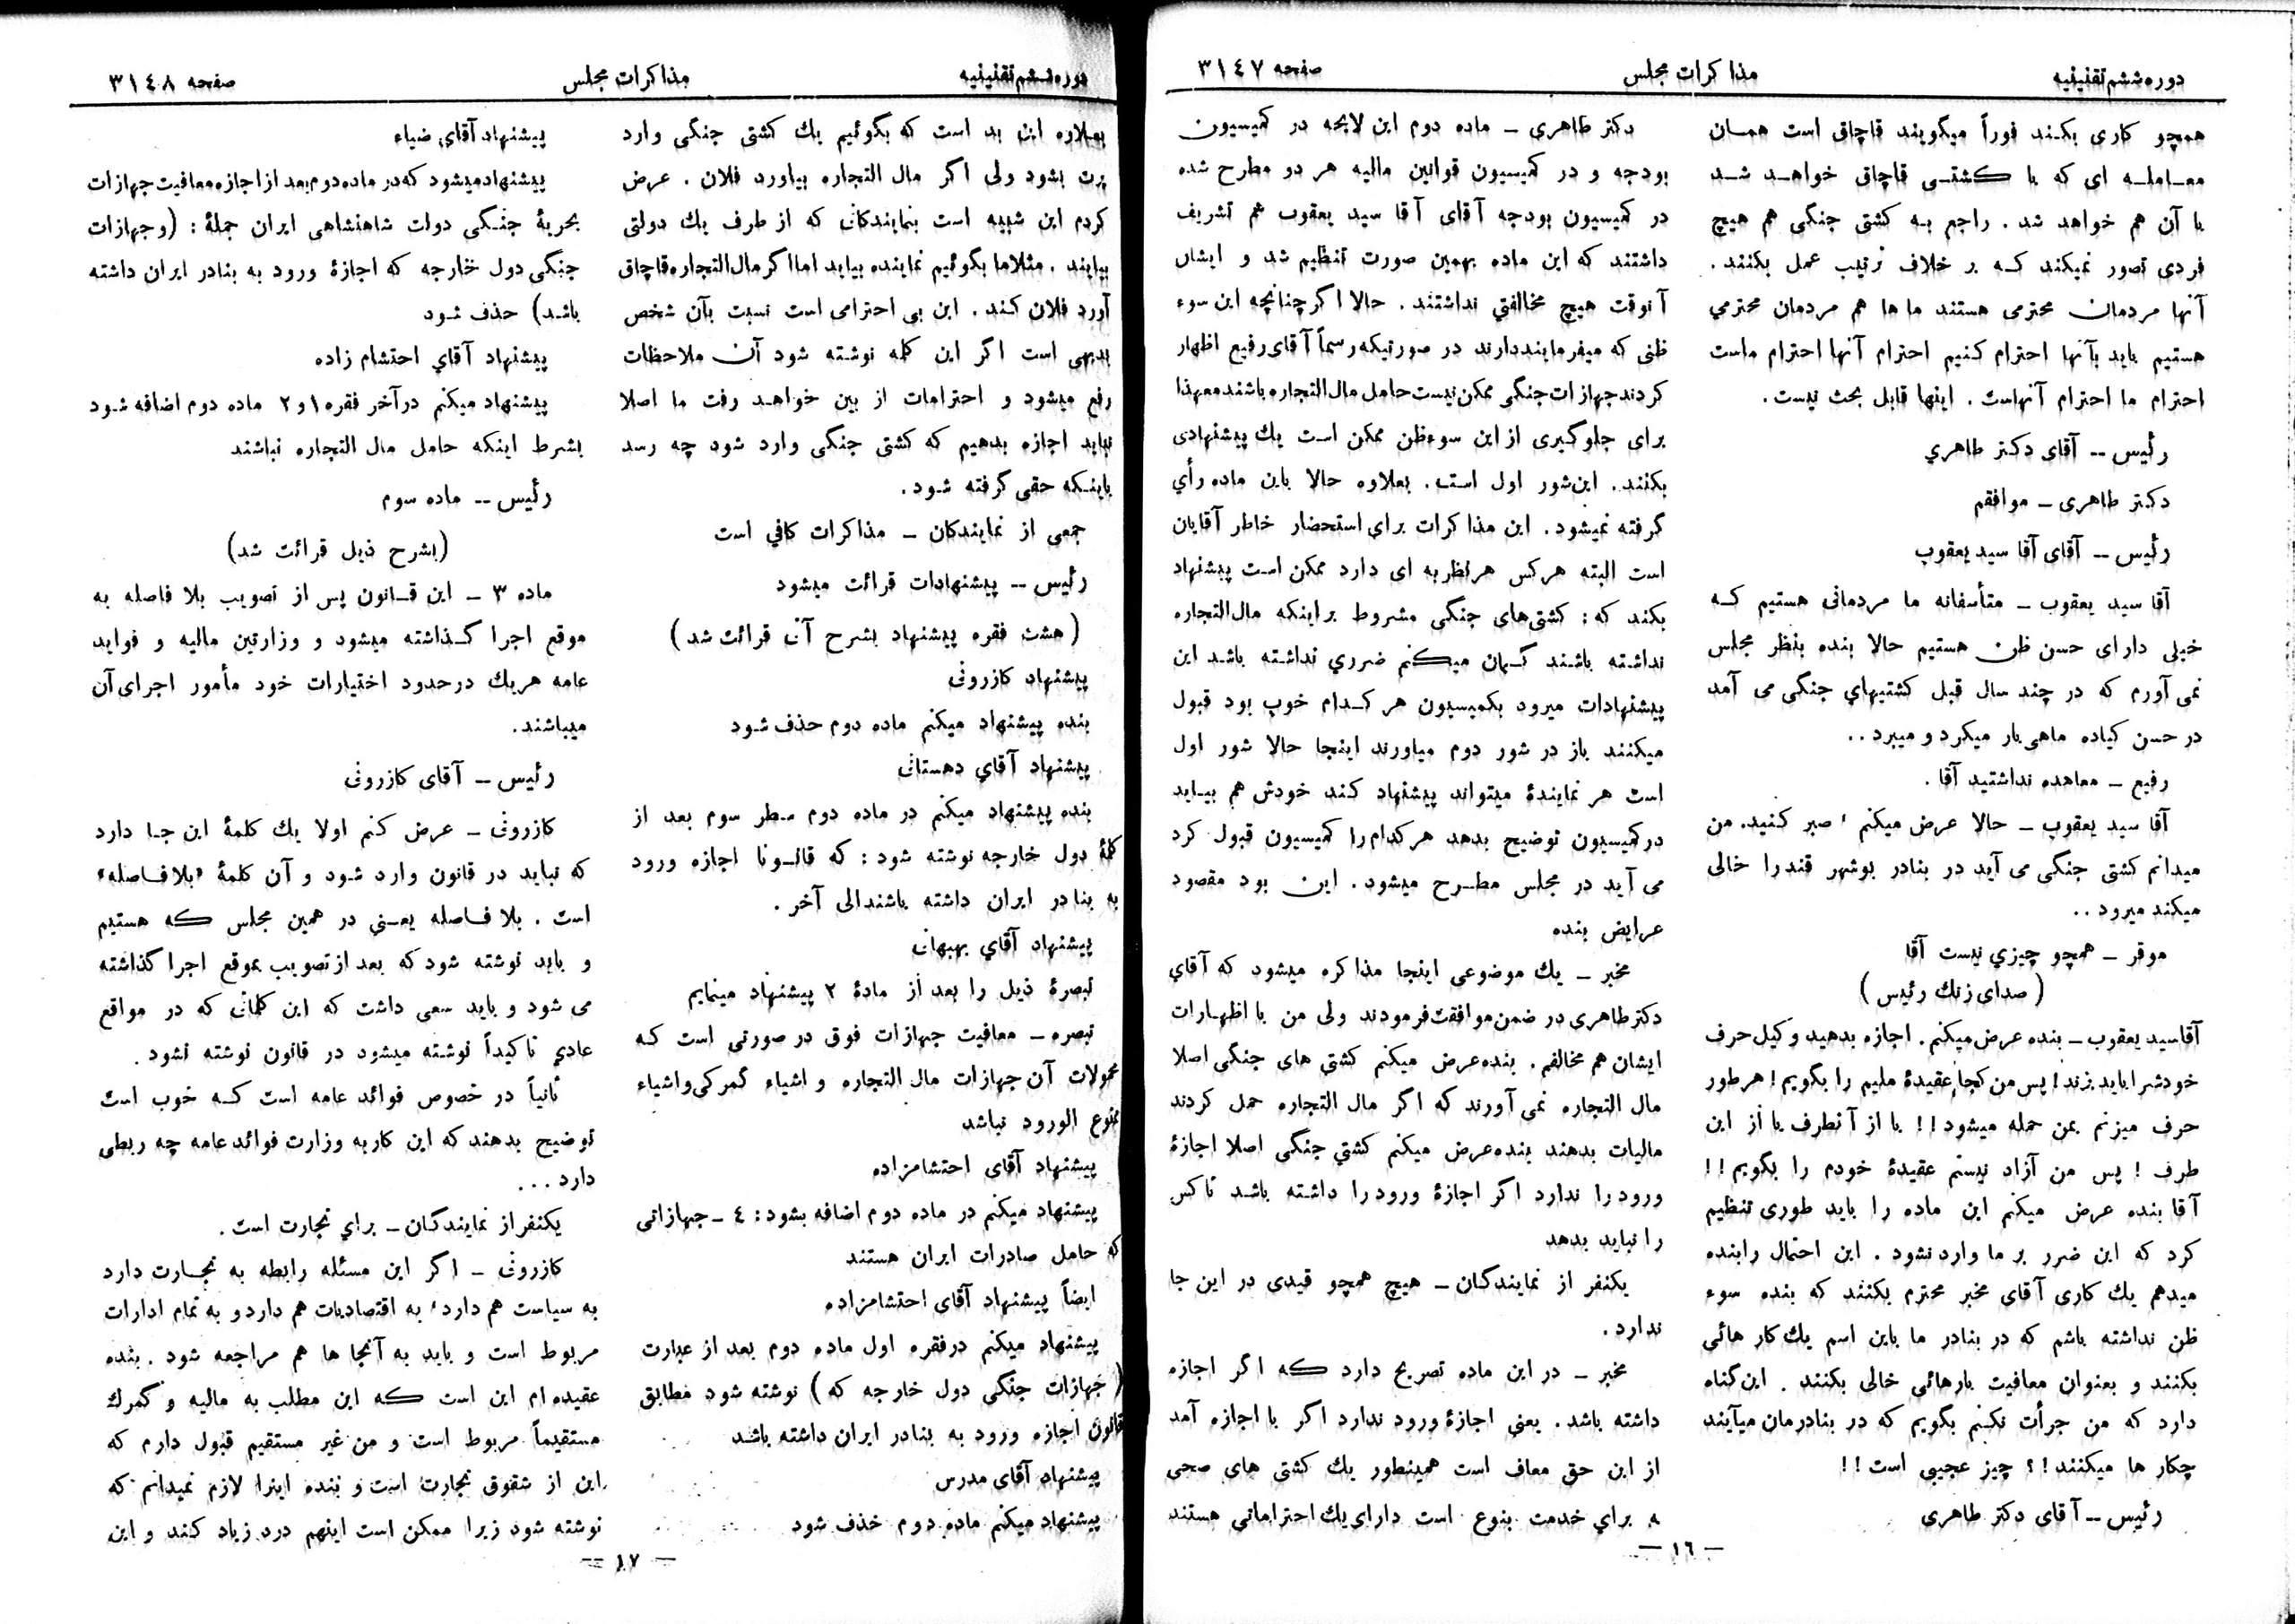 دوره ششم تقنینیه
مذاکرات مجلس
صفحه ۳۱٤۷
همچو کاری بکنند فوراً میگویند قاچاق است همان
معامله ای که با کشتی قاچاق خواهد شد
با آن هم خواهد شد . راجع به کشتی جنگی هم هیچ
فردی تصور نمیکند که بر خلاف ترتیب عمل بکنند .
آنها مردمان محترمی هستند ما ها هم مردمان محترمي
هستیم باید بآنها احترام کنیم احترام آنها احترام ماست
احترام ما احترام آنهاست . اینها قابل بحث نیست .
رئیس -- آقای دکتر طاهري
دکتر طاهری – موافقم
رئیس -- آقای آقا سید یعقوب
آقا سید یعقوب – متأسفانه ما مردمانی هستیم که
خیلی دارای حسن ظن هستیم حالا بنده بنظر مجلس
نمی آورم که در چند سال قبل کشتیهاي جنگی می آمد
در حسن کیاده ماهی بار میکرد و میبرد ..
رفیع – معاهده نداشتید آقا .
آقا سید یعقوب – حالا عرض میکنم ، صبر کنید. من
میدانم کشتی جنگی می آید در بنادر بوشهر قند را خالی
میکند میرود ..
موقر – همچو چیزي نیست آقا
( صدای زنك رئیس )
آقاسید یعقوب – بنده عرض میکنم . اجازه بدهید وکیل حرف
خودش را باید بزند ! پس من کجا عقیدهٔ ملیم را بگویم ! هر طور
حرف میزنم بمن حمله میشود !! یا از آنطرف یا از این
طرف ! پس من آزاد نیستم عقیدهٔ خودم را بگویم !!
آقا بنده عرض میکنم این ماده را باید طوری تنظیم
کرد که این ضرر بر ما وارد نشود . این احتمال را بنده
میدهم یك کاری آقای مخبر محترم بکنند که بنده سوء
ظن نداشته باشم که در بنادر ما باین اسم یك کار هائی
بکنند و بعنوان معافیت بارهائی خالی بکنند . این گناه
دارد که من جرأت نکنم بگویم که در بنادرمان میآیند
چکار ها میکنند !؟ چیز عجیبی است !!
رئیس -- آقای دکتر طاهری
دکتر طاهری – ماده دوم این لایحه در کمیسیون
بودجه و در کمیسیون قوانین مالیه هر دو مطرح شده
در کمیسیون بودجه آقای آقا سید یعقوب هم تشریف
داشتند که این ماده بهمین صورت تنظیم شد و ایشان
آنوقت هیچ مخالفتي نداشتند . حالا اگر چنانچه این سوء
ظنی که میفرمایند دارند در صورتیکه رسماً آقای رفیع اظهار
کردند جهازات جنگی ممکن نیست حامل مال التجاره باشند معهذا
برای جلوگیری از این سوءظن ممکن است یك پیشنهادی
بکنند . این شور اول است. بعلاوه حالا باین ماده رأي
گرفته نمیشود . این مذاکرات برای استحضار خاطر آقایان
است البته هرکس هر نظریه ای دارد ممکن است پیشنهاد
بکند که : کشتی‌های جنگی مشروط بر اینکه مال التجاره
نداشته باشند گمان میکنم ضرري نداشته باشد این
پیشنهادات میرود بکمیسیون هر کدام خوب بود قبول
میکنند باز در شور دوم میاورند اینجا حالا شور اول
است هر نمایندهٔ میتواند پیشنهاد کند خودش هم بیاید
در کمیسیون توضیح بدهد هر کدام را کمیسیون قبول کرد
می آید در مجلس مطرح میشود . این بود مقصود
عرایض بنده
مخبر – یك موضوعی اینجا مذاکره میشود که آقاي
دکتر طاهری در ضمن موافقت فرمودند ولی من با اظهارات
ایشان هم مخالفم . بنده عرض میکنم کشتي های جنگی اصلا
مال التجاره نمی آورند که اگر مال التجاره حمل کردند
مالیات بدهند بنده عرض میکنم کشتي جنگی اصلا اجازهٔ
ورود را ندارد اگر اجازهٔ ورود را داشته باشد تاکس
را نباید بدهد
یکنفر از نمایندگان – هیچ همچو قیدی در این جا
ندارد .
مخبر – در این ماده تصریح دارد که اگر اجازه
داشته باشد . یعنی اجازهٔ ورود ندارد اگر با اجازه آمد
از این حق معاف است همینطور یك کشتی های صحی
که برای خدمت بنوع است دارای یك احتراماتي هستند
— ۱٦ —
دوره ششم تقنینیه
مذاکرات مجلس
صفحه ۳۱٤۸
بعلاوه این بد است که بگوئیم یك کشتی جنگی وارد
پرت بشود ولی اگر مال التجاره بیاورد فلان . عرض
کردم این شبیه است بنمایندگانی که از طرف یك دولتی
بیایند . مثلا ما بگوئیم نماینده بیاید اما اگر مال التجاره قاچاق
آورد فلان کند . این بی احترامی است نسبت بآن شخص
بدیهی است اگر این کلمه نوشته شود آن ملاحظات
رفع میشود و احترامات از بین خواهد رفت ما اصلا
نباید اجازه بدهیم که کشتی جنگی وارد شود چه رسد
باینکه حقی گرفته شود .
جمعی از نمایندگان – مذاکرات کافي است
رئیس -- پیشنهادات قرائت میشود
( هشت فقره پیشنهاد بشرح آتی قرائت شد )
پیشنهاد کازرونی
بنده پیشنهاد میکنم ماده دوم حذف شود
پیشنهاد آقاي دهستانی
بنده پیشنهاد میکنم در ماده دوم سطر سوم بعد از
کلمهٔ دول خارجه نوشته شود : که قانونا اجازه ورود
به بنادر ایران داشته باشند الی آخر .
پیشنهاد آقاي بهبهانی
تبصرهٔ ذیل را بعد از مادهٔ ۲ پیشنهاد مینمایم
تبصره – معافیت جهازات فوق در صورتی است که
محمولات آن جهازات مال التجاره و اشیاء گمرکی و اشیاء
ممنوع الورود نباشد
پیشنهاد آقای احتشامزاده
پیشنهاد میکنم در ماده دوم اضافه بشود : ٤ – جهازاتی
که حامل صادرات ایران هستند
ایضاً پیشنهاد آقای احتشامزاده
پیشنهاد میکنم در فقره اول ماده دوم بعد از عبارت
( جهازات جنگی دول خارجه که ) نوشته شود مطابق
قانون اجازه ورود به بنادر ایران داشته باشد
پیشنهاد آقای مدرس
پیشنهاد میکنم ماده دوم حذف شود
پیشنهاد آقای ضیاء
پیشنهاد میشود که در ماده دوم بعد از اجازه معافیت جهازات
بحریهٔ جنگی دولت شاهنشاهی ایران جملهٔ : (و جهازات
جنگی دول خارجه که اجازهٔ ورود به بنادر ایران داشته
باشد) حذف شود
پیشنهاد آقاي احتشام زاده
پیشنهاد میکنم در آخر فقره ۱ و ۲ ماده دوم اضافه شود
بشرط اینکه حامل مال التجاره نباشند
رئیس -- ماده سوم
(بشرح ذیل قرائت شد)
ماده ۳ – این قانون پس از تصویب بلا فاصله به
موقع اجرا گذاشته میشود و وزارتین مالیه و فواید
عامه هریك در حدود اختیارات خود مأمور اجرای آن
میباشند .
رئیس -- آقای کازرونی
کازرونی – عرض کنم اولا یك کلمهٔ این جا دارد
که نباید در قانون وارد شود و آن کلمهٔ «بلافاصله»
است . بلا فاصله یعنی در همین مجلس که هستیم
و باید نوشته شود که بعد از تصویب بموقع اجرا گذاشته
می شود و باید سعی داشت که این کلماتی که در مواقع
عادي تاکیداً نوشته میشود در قانون نوشته نشود .
ثانیاً در خصوص فوائد عامه است که خوب است
توضیح بدهند که این کار به وزارت فوائد عامه چه ربطی
دارد ...
یکنفر از نمایندگان – برای تجارت است .
کازرونی – اگر این مسئله رابطه به تجارت دارد
به سیاست هم دارد ، به اقتصادیات هم دارد و به تمام ادارات
مربوط است و باید به آنجا ها هم مراجعه شود . بنده
عقیده ام این است که این مطلب به مالیه و گمرك
مستقیماً مربوط است و من غیر مستقیم قبول دارم که
این از شقوق تجارت است و بنده اینرا لازم نمیدانم که
نوشته شود زیرا ممکن است اینهم درد زیاد کند و این
— ۱۷ —